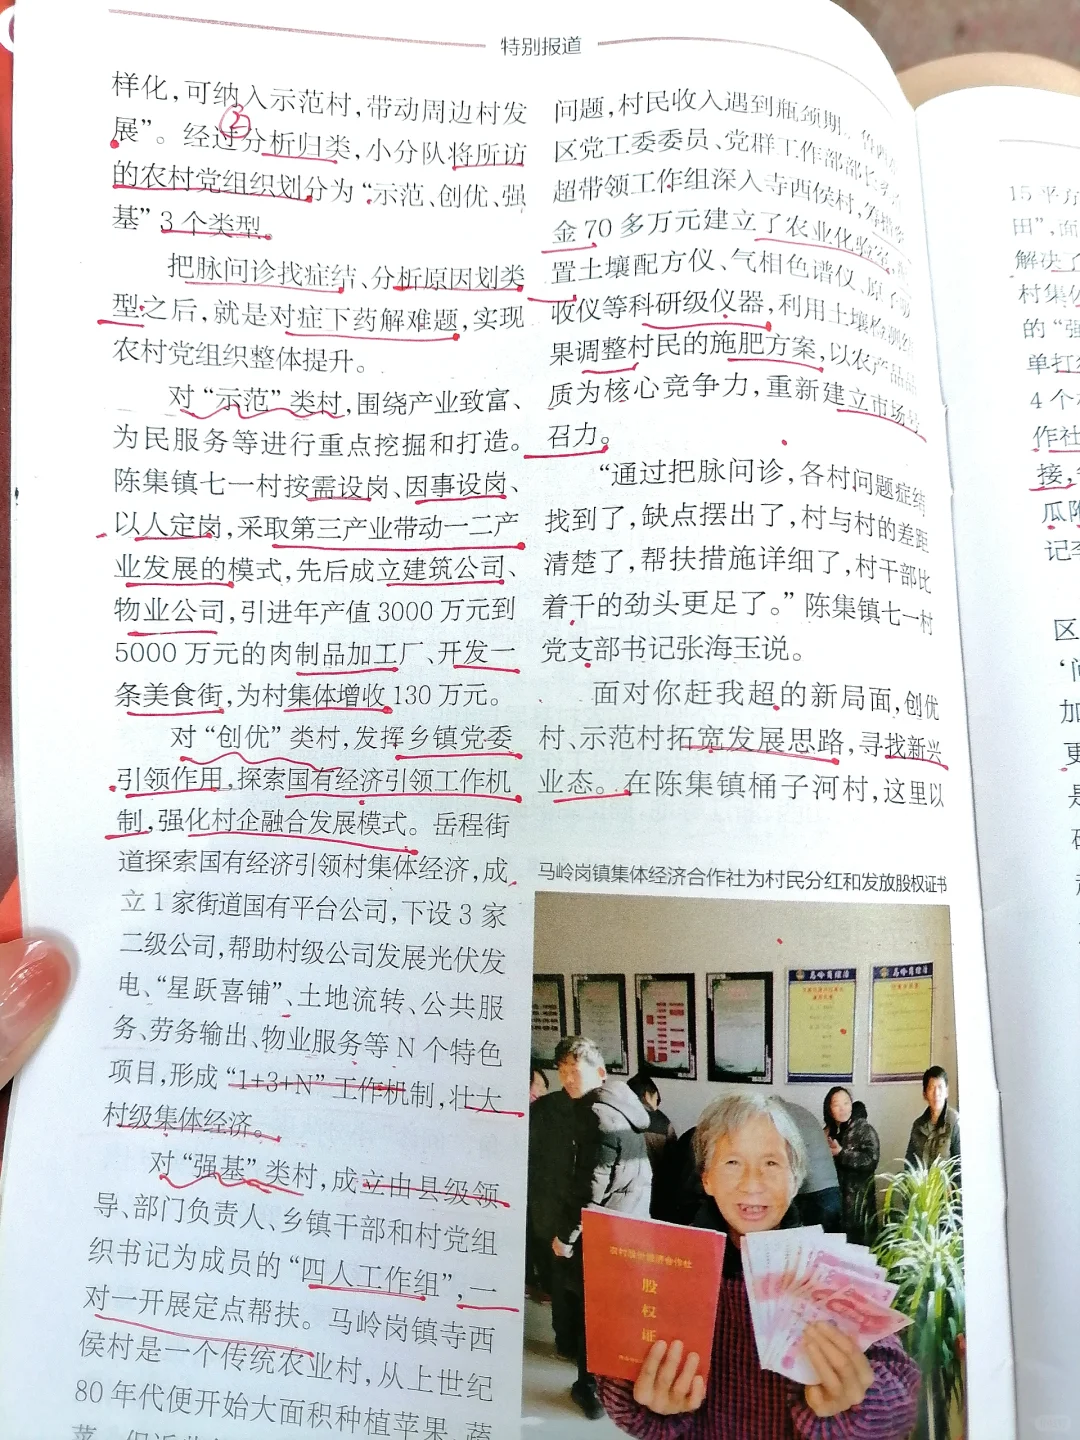 特别报道
样化，可纳入示范村，带动周边村发
②
展”。经过分析归类，小分队将所访
的农村党组织划分为“示范、创优、强
基”3个类型。
把脉问诊找症结、分析原因划类
型之后，就是对症下药解难题，实现
农村党组织整体提升。
对“示范”类村，围绕产业致富、
为民服务等进行重点挖掘和打造。
陈集镇七一村按需设岗、因事设岗、
以人定岗，采取第三产业带动一二产
业发展的模式，先后成立建筑公司、
物业公司，引进年产值3000万元到
5000万元的肉制品加工厂、开发一
条美食街，为村集体增收130万元。
对“创优”类村，发挥乡镇党委
引领作用，探索国有经济引领工作机
制，强化村企融合发展模式。岳程街
道探索国有经济引领村集体经济，成
立1家街道国有平台公司，下设3家
二级公司，帮助村级公司发展光伏发
电、“星跃喜铺”、土地流转、公共服
务、劳务输出、物业服务等N个特色
项目，形成“1+3+N”工作机制，壮大
村级集体经济。
对“强基”类村，成立由县级领
导、部门负责人、乡镇干部和村党组
织书记为成员的“四人工作组”，一
对一开展定点帮扶。马岭岗镇寺西
侯村是一个传统农业村，从上世纪
80年代便开始大面积种植苹果、蔬
问题，村民收入遇到瓶颈期。
区党工委委员、党群工作部部长
超带领工作组深入寺西侯村，筹措资
金70多万元建立了农业化验室，
置土壤配方仪、气相色谱仪、原子吸
收仪等科研级仪器，利用土壤检测结
果调整村民的施肥方案，以农产品品
质为核心竞争力，重新建立市场号
召力。
“通过把脉问诊，各村问题症结
找到了，缺点摆出了，村与村的差距
清楚了，帮扶措施详细了，村干部比
着干的劲头更足了。”陈集镇七一村
党支部书记张海玉说。
面对你赶我超的新局面，创优
村、示范村拓宽发展思路，寻找新兴
业态。在陈集镇桶子河村，这里以
马岭岗镇集体经济合作社为村民分红和发放股权证书
股
权
证
15平方
田”，面
解决了
村集体
的“强
单打
4个村
作社
接，
瓜
记李
区
加
更
是